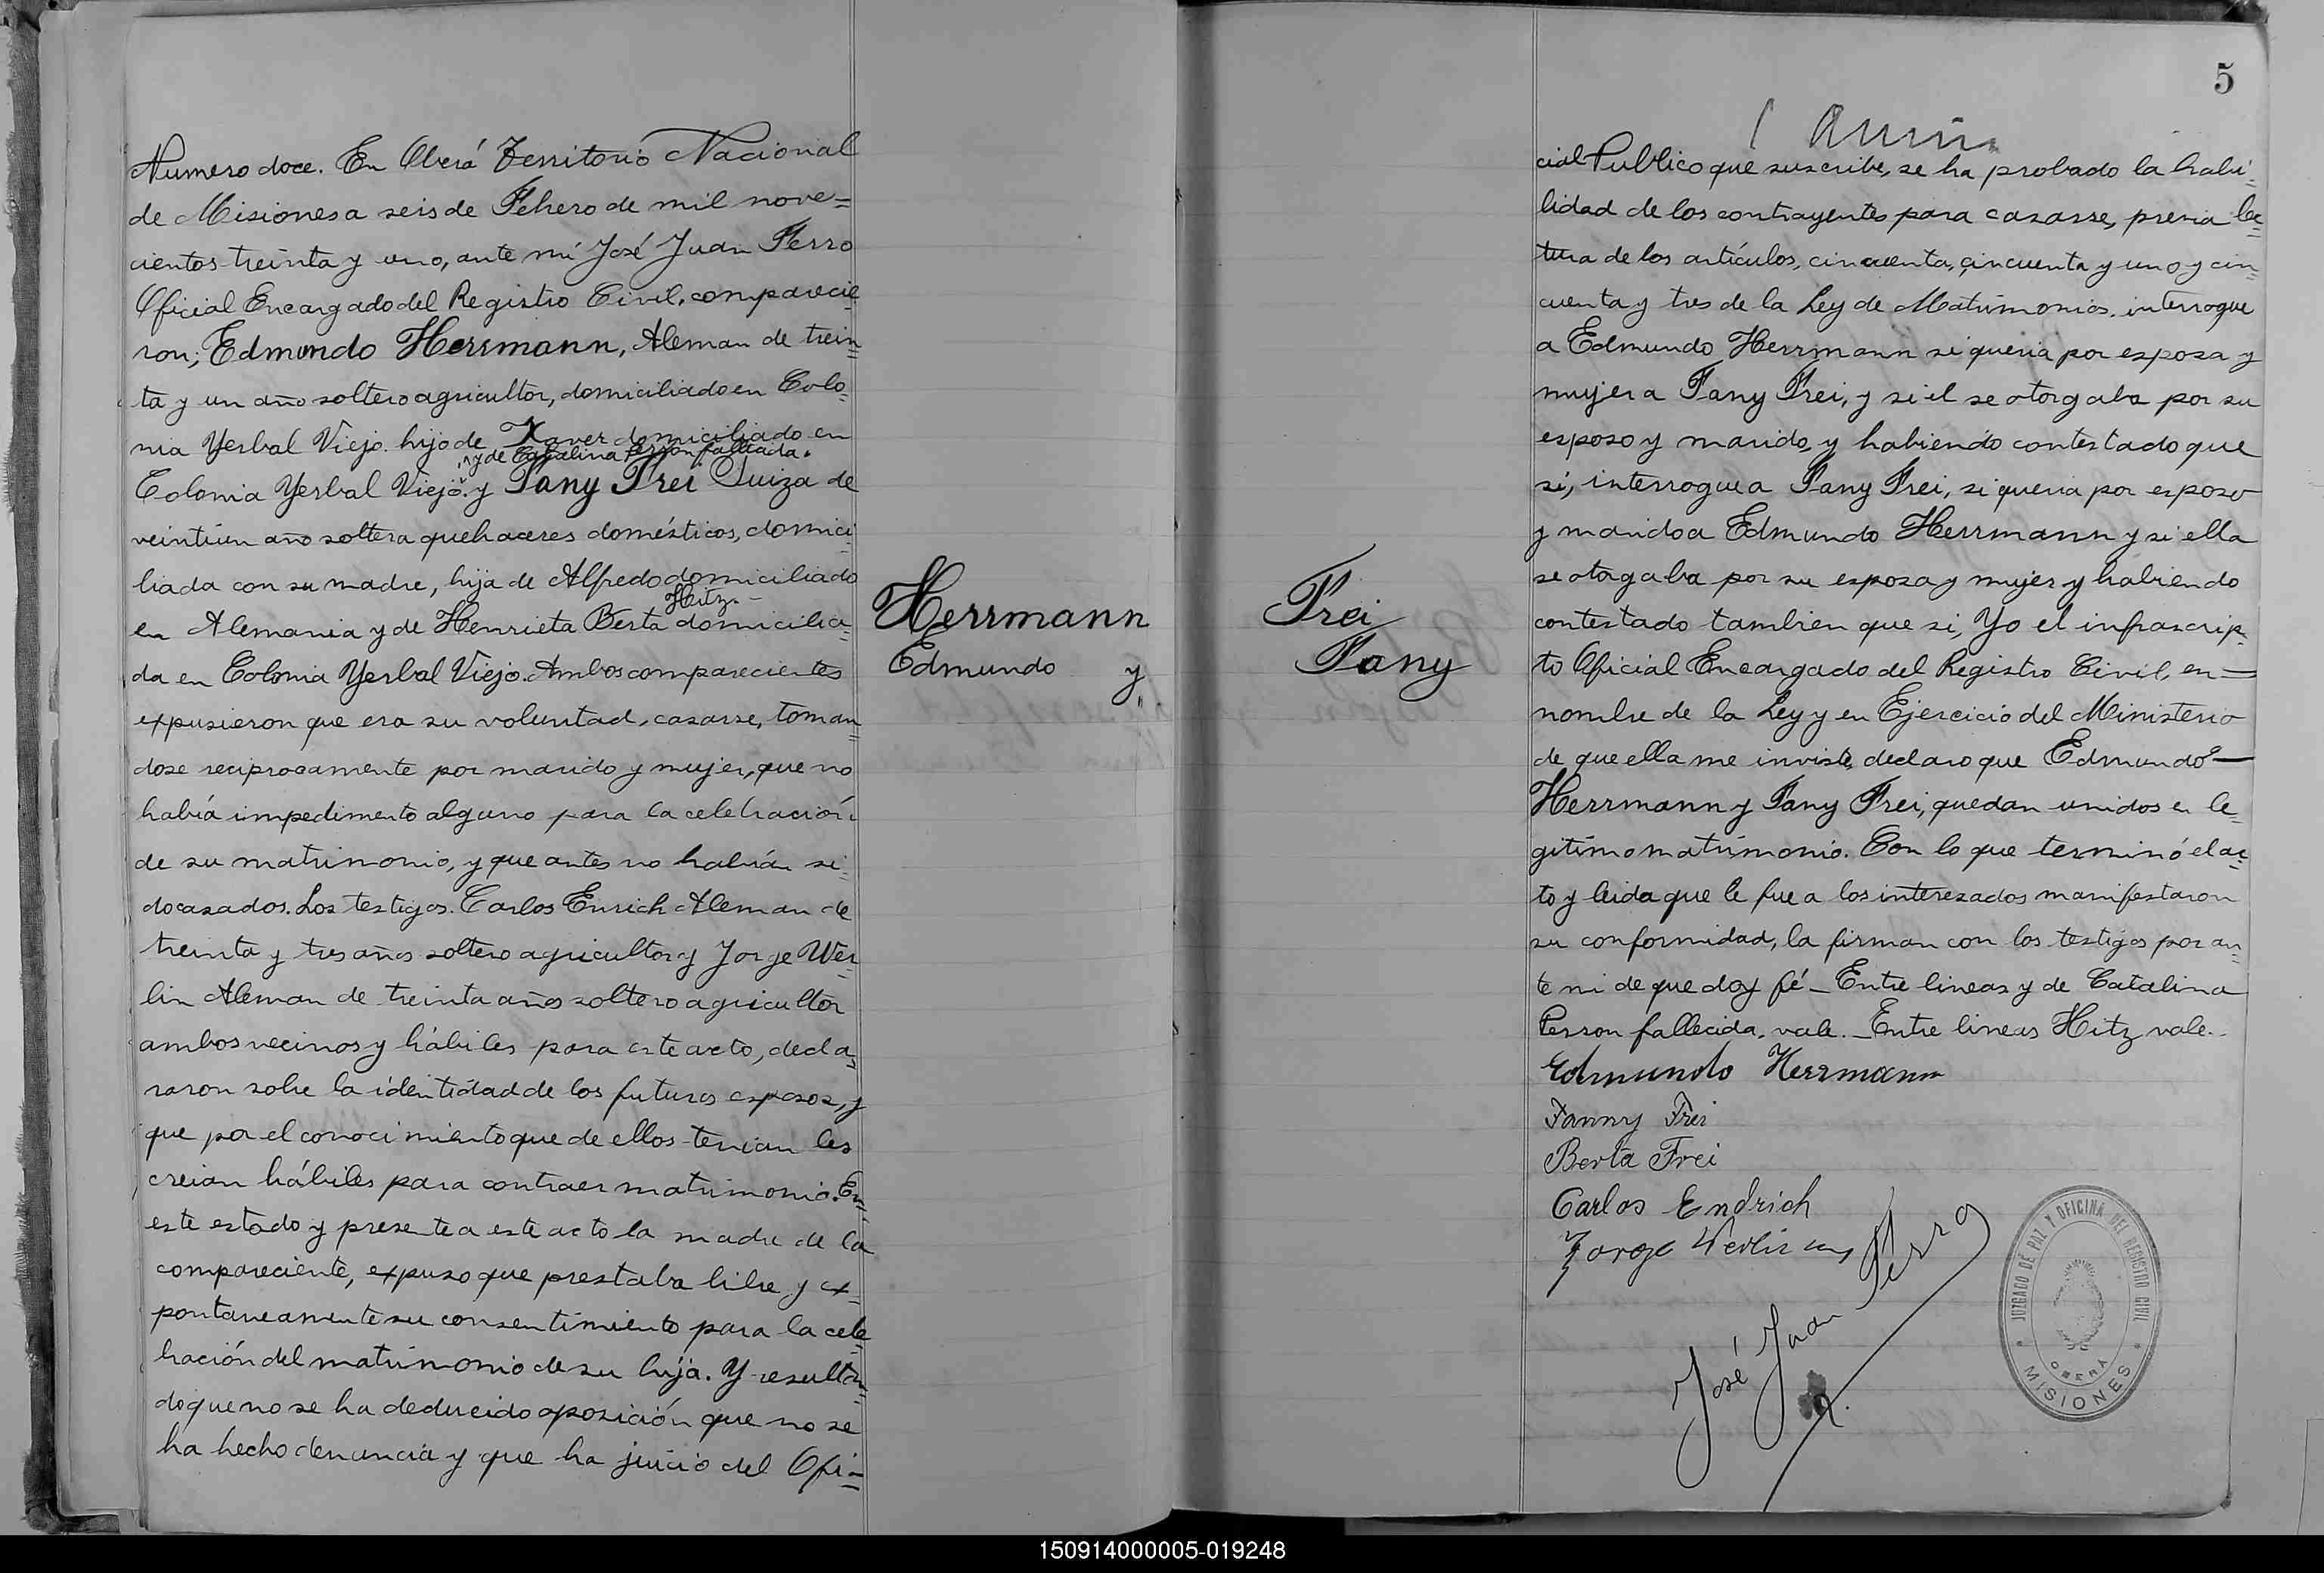 Numero doce. En Oberá Territorio Nacional
de Misiones a seis de Febrero de mil nove=
cientos treinta y uno, ante mí José Juan Ferro
Oficial Encargado del Registro Civil, comparecie=
ron; Edmundo Herrmann, Aleman de trein=
ta y un año soltero agricultor, domiciliado en Colo=
nia Yerbal Viejo. hijo de Xaver domiciliado en
y de Catalina Persson fallecida.
Colonia Yerbal Viejo. y Fany Frei Suiza de
veintiun año soltera quehaceres domésticos, domici=
liada con su madre, hija de Alfredo domiciliado
Hitz.-
en Alemania y de Henrieta Berta domicilia=
da en Colonia Yerbal Viejo. Ambos comparecientes
expusieron que era su voluntad, casarse, toman=
dose reciprocamente por marido y mujer, que no
había impedimento alguno para la celebración
de su matrimonio, y que antes no habían si=
do casados. Los testigos. Carlos Enrich Aleman de
treinta y tres años soltero agricultor y Jorge Wer=
lin Aleman de treinta años soltero agricultor
ambos vecinos y hábiles para este acto, decla=
raron sobre la identidad de los futuros esposos, y
que por el conocimiento que de ellos tenian les
creian hábiles para contraer matrimonio. En
este estado y presente a este acto la madre de la
compareciente, expuso que prestaba libre y ex=
pontaneamente su consentimiento para la cele=
bración del matrimonio de su hija. Y resultan=
do que no se ha deducido oposición que no se
ha hecho denuncia y que ha juicio del Ofi=
Herrmann
Edmundo y
Frei
Fany
5
cial Publico que suscribe, se ha probado la habi=
lidad de los contrayentes para casarse, previa lec=
tura de los artículos, cincuenta, cincuenta y uno y cin=
cuenta y tres de la Ley de Matrimonios. interrogue
a Edmundo Herrmann si queria por esposa y
mujer a Fany Frei, y si el se otorgaba por su
esposo y marido, y habiendo contestado que
si, interrogue a Fany Frei, si queria por esposo
y marido a Edmundo Herrmann y si ella
se otorgaba por su esposa y mujer y habiendo
contestado tambien que si, Yo el infrascrip=
to Oficial Encargado del Registro Civil, en=
nombre de la Ley y en Ejercicio del Ministerio
de que ella me inviste, declaro que Edmundo—
Herrmann y Fany Frei, quedan unidos en le=
gitimo matrimonio. Con lo que terminó el ac=
to y leida que le fue a los interesados manifestaron
su conformidad, la firman con los testigos por an=
te mi de que doy fé_ Entre lineas y de Catalina
Persson fallecida. vale._ Entre lineas Hitz vale..
Edmundo Herrmann
Fanny Frei
Berta Frei
Carlos Endrich
Jorge
José Juan Ferro
JUZGADO DE PAZ Y OFICINA DEL REGISTRO CIVIL
OBERÁ
MISIONES
150914000005-019248